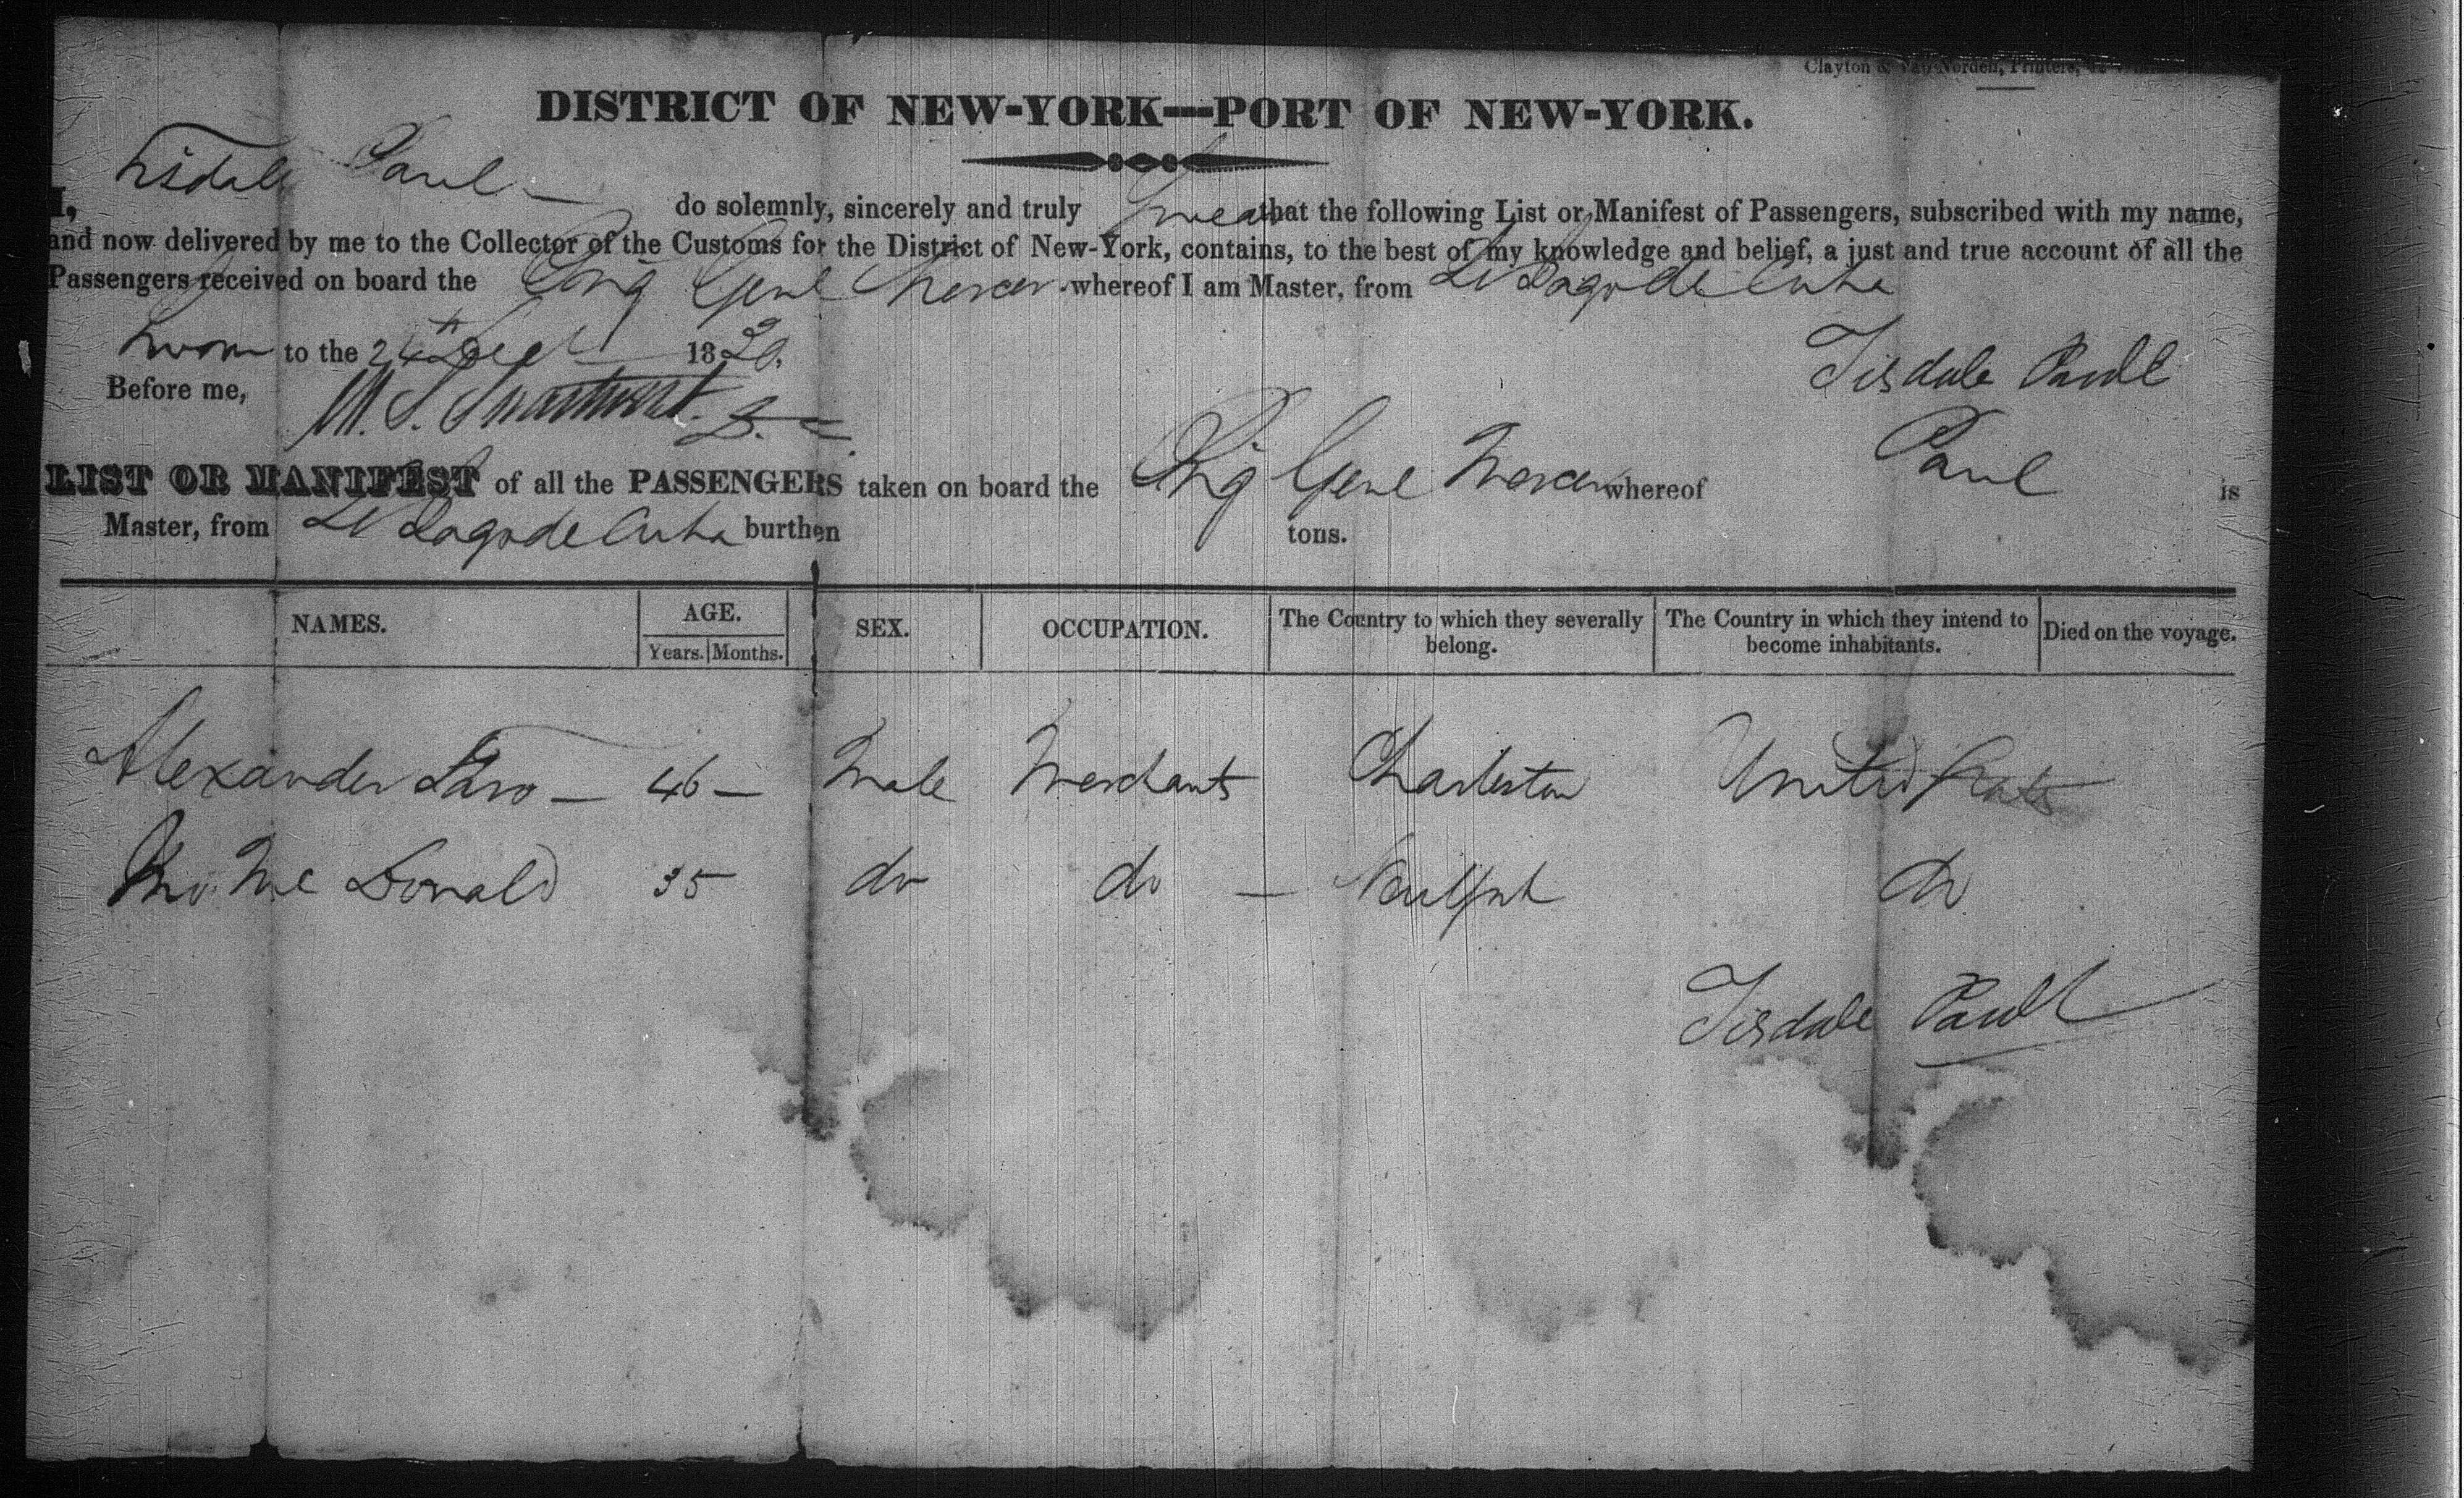 Clayton & Van Norden, Printers,
DISTRICT OF NEW-YORK—PORT OF NEW-YORK.
I, Tisdale Paul do solemnly, sincerely and truly Swear that the following List or Manifest of Passengers, subscribed with my name,
and now delivered by me to the Collector of the Customs for the District of New-York, contains, to the best of my knowledge and belief, a just and true account of all the
Passengers received on board the Brig Genl Mercer whereof I am Master, from St Iago de Cuba
Sworn to the 1820.
Tisdale Paull
Before me, M. S. Swartwout
LIST OR MANIFEST of all the PASSENGERS taken on board the Brig Genl Mercer whereof Paul is
Master, from St Iago de Cuba burthen tons.
NAMES. AGE. Years. Months. SEX. OCCUPATION. The Country to which they severally belong. The Country in which they intend to become inhabitants. Died on the voyage.
Alexander — 46 — Male Merchants Charleston United States
Mc Donald 35 do do — do
Tisdale Paull